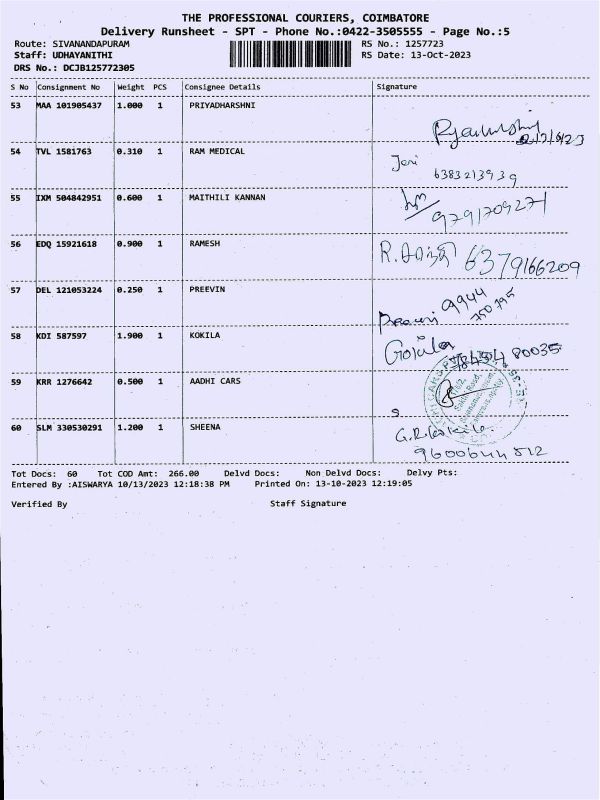 THE PROFESSIONAL COURIERS, COIMBATORE
Delivery Runsheet - SPT - Phone No.:0422-3505555 - Page No.:5
Route: SIVANANDAPURAM RS No.: 1257723
Staff: UDHAYANITHI RS Date: 13-Oct-2023
DRS No.: DCJB125772305
S No Consignment No Weight PCS Consignee Details Signature
53 MAA 101905437 1.000 1 PRIYADHARSHNI
54 TVL 1581763 0.310 1 RAM MEDICAL
6383213939
55 IXM 504842951 0.600 1 MAITHILI KANNAN
9791709271
56 EDQ 15921618 0.900 1 RAMESH
6379166209
57 DEL 121053224 0.250 1 PREEVIN
9944
750795
58 KDI 587597 1.900 1 KOKILA
80035
59 KRR 1276642 0.500 1 AADHI CARS
60 SLM 330530291 1.200 1 SHEENA
Tot Docs: 60 Tot COD Amt: 266.00 Delvd Docs: Non Delvd Docs: Delvy Pts:
Entered By :AISWARYA 10/13/2023 12:18:38 PM Printed On: 13-10-2023 12:19:05
Verified By Staff Signature